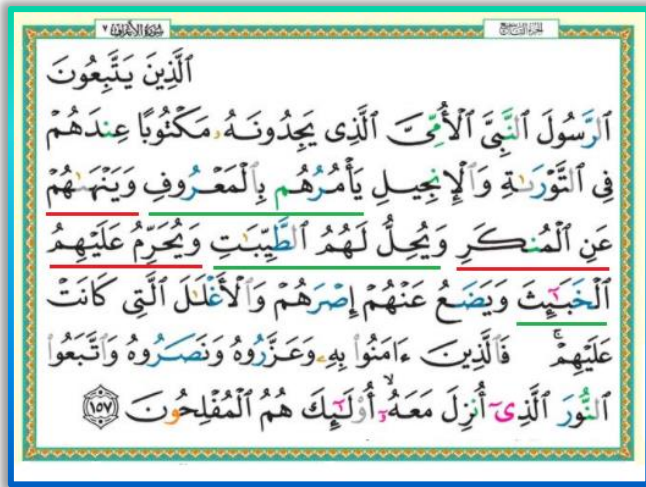 سُورَةُ الْأَعْرَافِ ٧
الجزء التاسع
ٱلَّذِينَ يَتَّبِعُونَ
ٱلرَّسُولَ ٱلنَّبِيَّ ٱلْأُمِّيَّ ٱلَّذِى يَجِدُونَهُۥ مَكْتُوبًا عِندَهُمْ
فِى ٱلتَّوْرَىٰةِ وَٱلْإِنجِيلِ يَأْمُرُهُم بِٱلْمَعْرُوفِ وَيَنْهَىٰهُمْ
عَنِ ٱلْمُنكَرِ وَيُحِلُّ لَهُمُ ٱلطَّيِّبَـٰتِ وَيُحَرِّمُ عَلَيْهِمُ
ٱلْخَبَـٰٓئِثَ وَيَضَعُ عَنْهُمْ إِصْرَهُمْ وَٱلْأَغْلَـٰلَ ٱلَّتِى كَانَتْ
عَلَيْهِمْ ۚ فَٱلَّذِينَ ءَامَنُوا۟ بِهِۦ وَعَزَّرُوهُ وَنَصَرُوهُ وَٱتَّبَعُوا۟
ٱلنُّورَ ٱلَّذِىٓ أُنزِلَ مَعَهُۥٓ ۙ أُو۟لَـٰٓئِكَ هُمُ ٱلْمُفْلِحُونَ ١٥٧